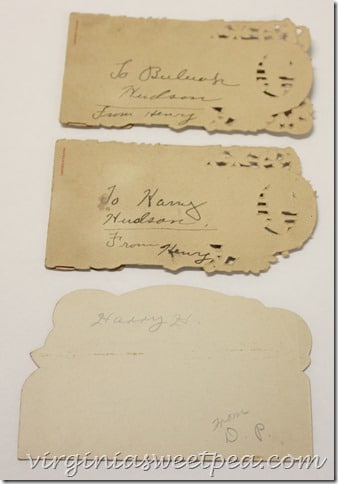 To Beulah
Hudson
From Henry
To Harry
Hudson.
From Henry.
Harry H.
from
D. P.
virginiasweetpea.com